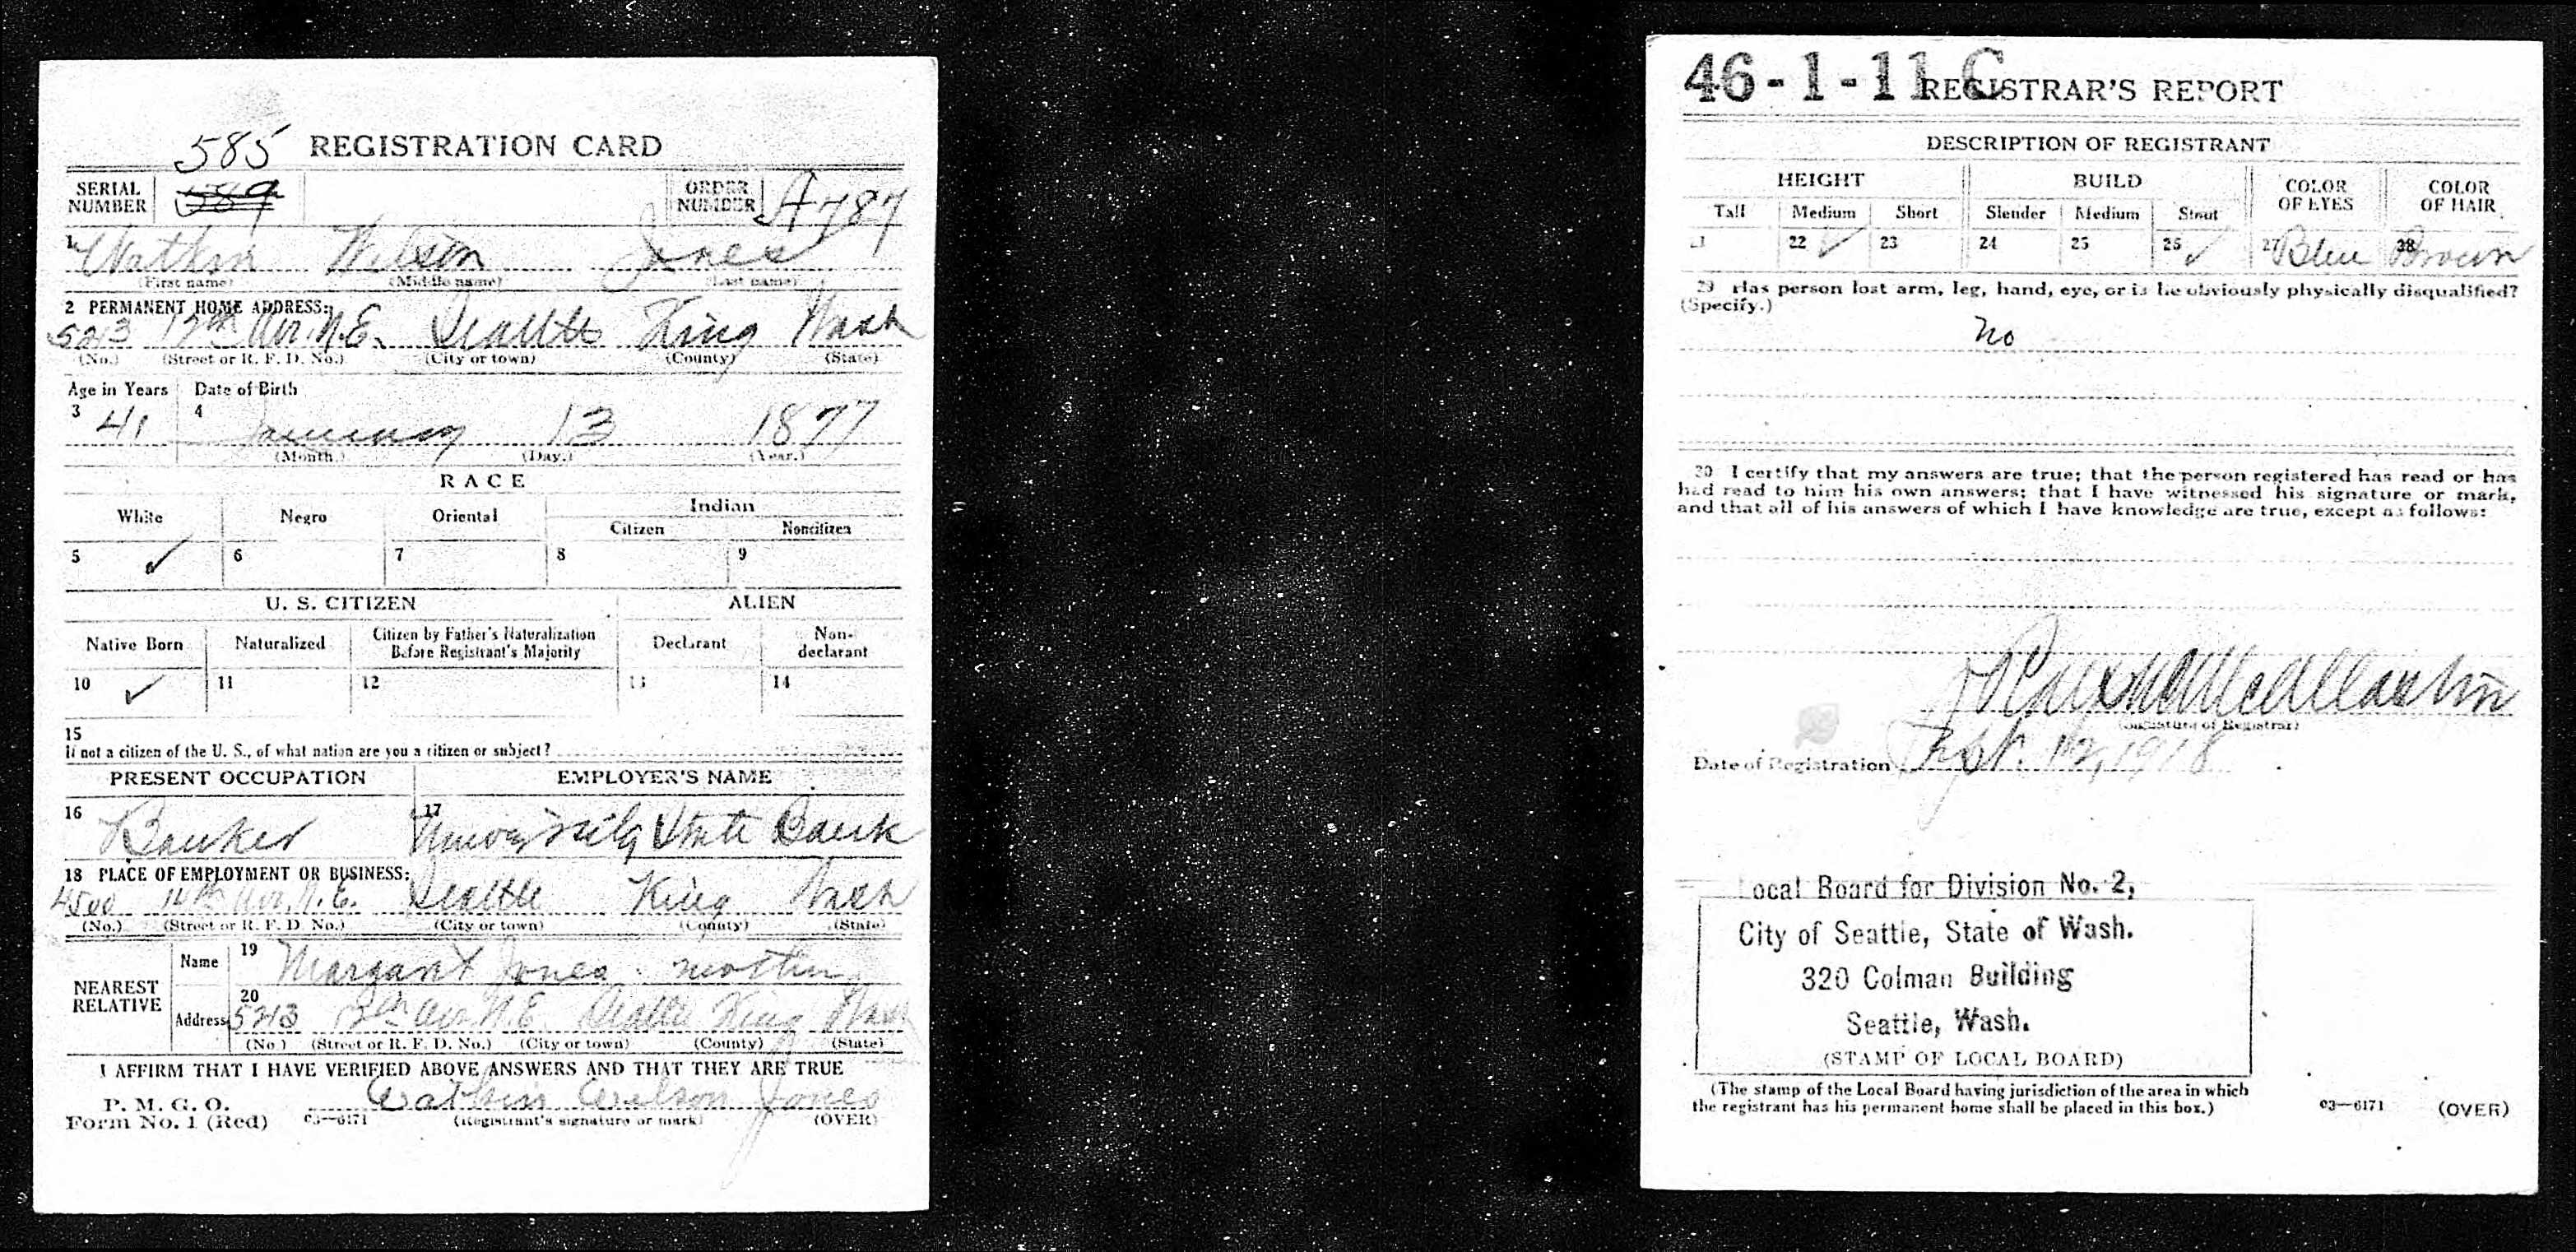 585 REGISTRATION CARD
SERIAL NUMBER 589 ORDER NUMBER A787
1 Watkin Wilson Jones
(First name) (Middle name) (Last name)
2 PERMANENT HOME ADDRESS:
5213 12th Av. N.E. Seattle King Wash
(No.) (Street or R. F. D. No.) (City or town) (County) (State)
Age in Years Date of Birth
3 41 4 January 13 1877
(Month.) (Day.) (Year.)
RACE
White Negro Oriental Indian
Citizen Noncitizen
5 ✓ 6 7 8 9
U. S. CITIZEN ALIEN
Native Born Naturalized Citizen by Father's Naturalization Before Registrant's Majority Declarant Non-declarant
10 ✓ 11 12 13 14
15
If not a citizen of the U. S., of what nation are you a citizen or subject?
PRESENT OCCUPATION EMPLOYER'S NAME
16 Banker 17 University State Bank
18 PLACE OF EMPLOYMENT OR BUSINESS:
4500 14th Av. N.E. Seattle King Wash
(No.) (Street or R. F. D. No.) (City or town) (County) (State)
NEAREST RELATIVE
Name 19 Margaret Jones mother
Address 20 5213 12th Av. N.E. Seattle King Wash
(No.) (Street or R. F. D. No.) (City or town) (County) (State)
I AFFIRM THAT I HAVE VERIFIED ABOVE ANSWERS AND THAT THEY ARE TRUE
P. M. G. O.
Form No. 1 (Red) 03—6171 Watkin Wilson Jones
(Registrant's signature or mark) (OVER)
46-1-11 C
REGISTRAR'S REPORT
DESCRIPTION OF REGISTRANT
HEIGHT BUILD COLOR OF EYES COLOR OF HAIR
Tall Medium Short Slender Medium Stout
21 22 ✓ 23 24 25 26 ✓ 27 Blue 28 Brown
29 Has person lost arm, leg, hand, eye, or is he obviously physically disqualified?
(Specify.)
No
30 I certify that my answers are true; that the person registered has read or has
had read to him his own answers; that I have witnessed his signature or mark,
and that all of his answers of which I have knowledge are true, except as follows:
(Signature of Registrar)
Date of Registration Sept. 12, 1918
Local Board for Division No. 2,
City of Seattle, State of Wash.
320 Colman Building
Seattle, Wash.
(STAMP OF LOCAL BOARD)
(The stamp of the Local Board having jurisdiction of the area in which
the registrant has his permanent home shall be placed in this box.)
03—6171 (OVER)